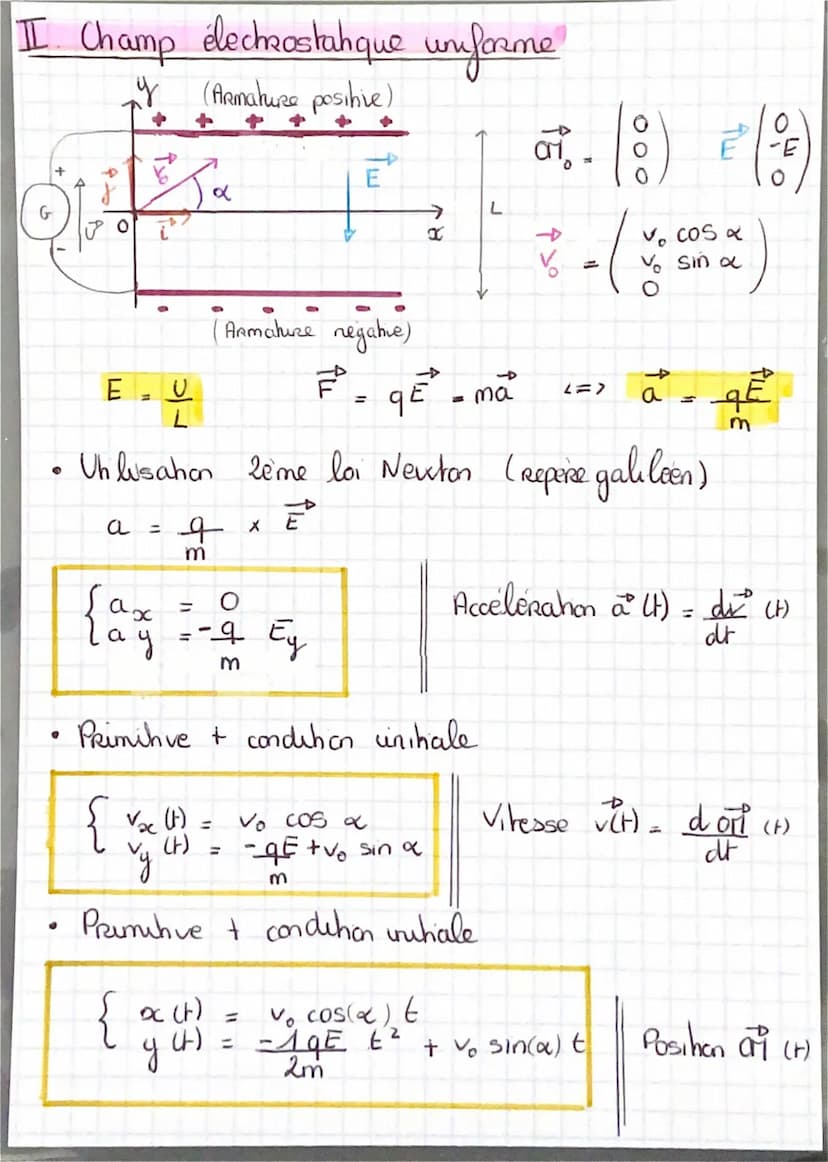 II. Champ électrostatique uniforme
y (Armature positive)
+ + + + + +
OM₀⃗ = (0 0 0) E⃗ (0 -E 0)
+ G - U⃗ j⃗ v₀⃗ α E⃗ L
O i⃗ x
v₀⃗ = (v₀ cos α v₀ sin α 0)
- - - - - -
(Armature négative)
E = U/L F⃗ = qE⃗ = ma⃗ <=> a⃗ = qE⃗/m
• Utilisation 2ème loi Newton (repère galiléen)
a = q/m × E⃗
{ ax = 0
ay = -q/m Ey
Accélération a⃗ (t) = dv⃗/dt (t)
• Primitive + condition initiale
{ vx (t) = v₀ cos α
vy (t) = -qE/m + v₀ sin α
Vitesse v⃗(t) = d OM⃗/dt (t)
• Primitive + condition initiale
{ x (t) = v₀ cos(α) t
y (t) = -1qE/2m t² + v₀ sin(α) t
Position OM⃗ (t)